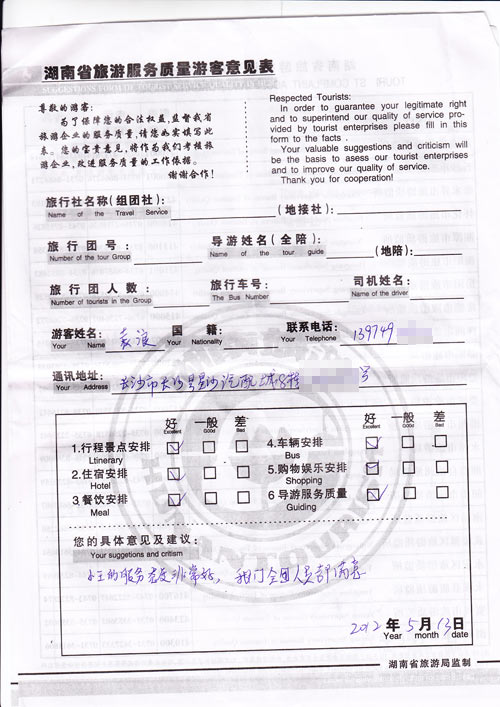 湖南省旅游服务质量游客意见表
尊敬的游客:
为了保障您的合法权益,监督我省
旅游企业的服务质量,请您如实填写此
表。您的宝贵意见,将作为我们考核旅
游企业,改进服务质量的工作依据。
谢谢合作!
Respected Tourists:
In order to guarantee your legitimate right
and to superintend our quality of service pro-
vided by tourist enterprises please fill in this
form to the facts .
Your valuable suggestions and criticism will
be the basis to asess our tourist enterprises
and to improve our quality of service.
Thank you for cooperation!
旅行社名称(组团社): (地接社):
Name of the Travel Service
旅行团号: 导游姓名(全陪): (地陪):
Number of the tour Group Name of the tour guide
旅行团人数: 旅行车号: 司机姓名:
Number of tourists in the Group The Bus Number Name of the driver
游客姓名: 袁滨 国籍: 联系电话: 139749
Your Name Your Nationality Your Telephone
通讯地址: 长沙市长沙县星沙汽配城8栋 号
Your Address
好 一般 差 好 一般 差
Excellent Good Bad Excellent Good Bad
1.行程景点安排 4.车辆安排
Ltinerary Bus
2.住宿安排 5.购物娱乐安排
Hotel Shopping
3.餐饮安排 6 导游服务质量
Meal Guiding
您的具体意见及建议:
Your suggetions and critism
小王的服务态度非常好, 我们全团人员都满意
2012年5月13日
Year month date
湖南省旅游局监制